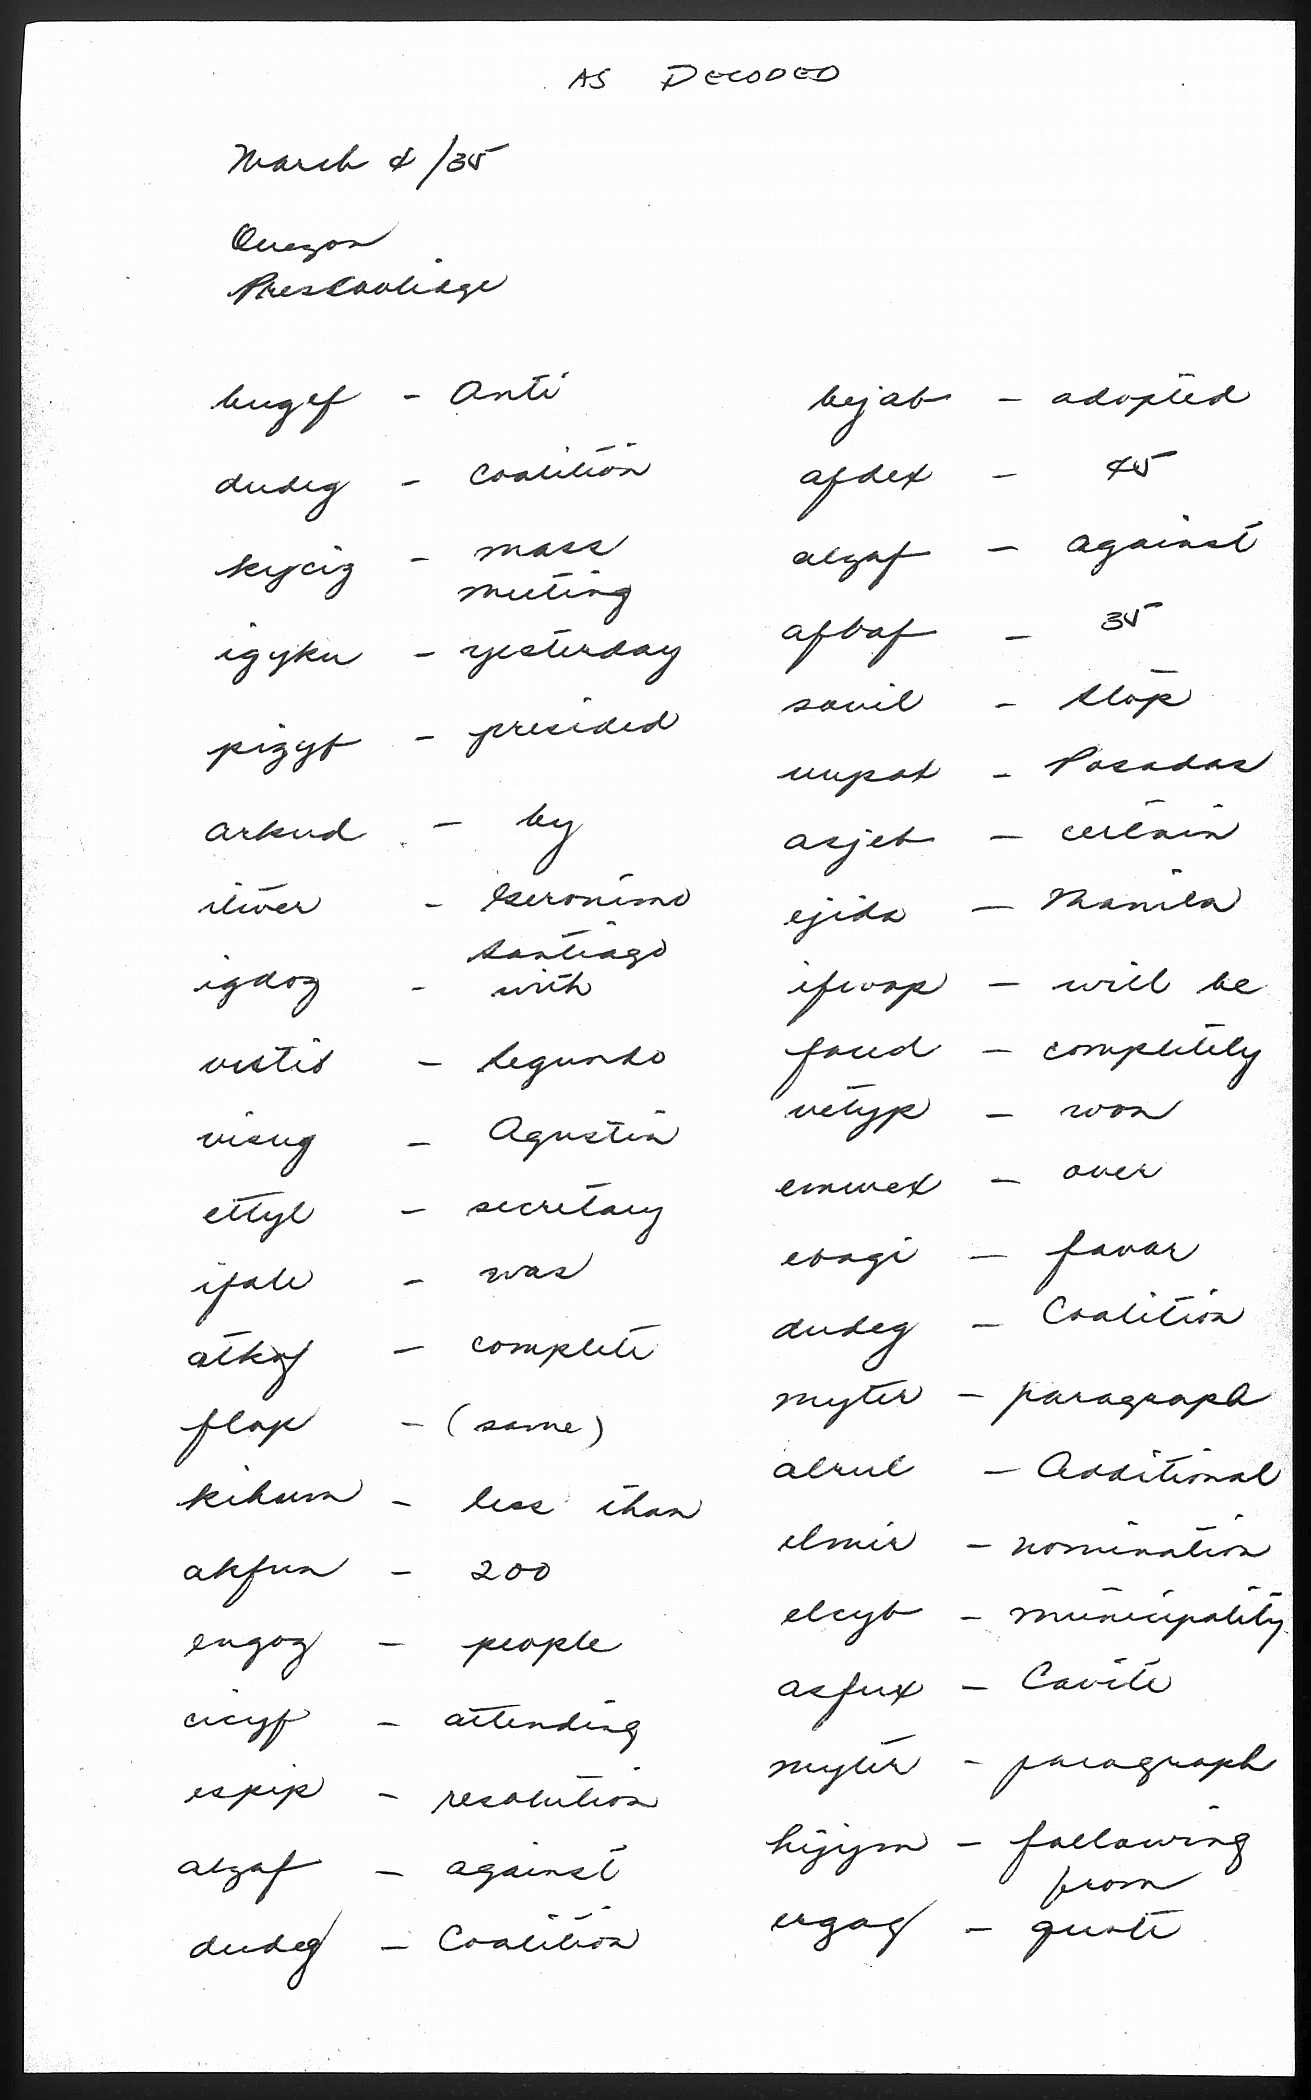 AS DECODED
March 4/35
Quezon
PresCoolidge
bugef - Anti
dudeg - Coalition
kyciz - mass
meeting
igyku - yesterday
pizyf - presided
arkud - by
iliver - Geronimo
Santiago
igdoz - with
vistis - Segundo
visug - Agustin
ettyl - secretary
ifale - was
atkof - complete
flop - (same)
kihum - less than
akfun - 200
engoz - people
cicyf - attending
espip - resolution
alzaf - against
dudeg - Coalition
bejab - adopted
afdex - 45
alzaf - against
afbaf - 35
sovil - Stop
uupat - Posadas
asjeb - certain
ejida - Manila
ifwop - will be
foud - completely
vetyp - won
emwex - over
evagi - favor
dudeg - Coalition
myter - paragraph
alrul - Additional
elmir - nomination
elcyb - municipality
asfux - Cavite
myter - paragraph
hijym - following
from
ergag - quote